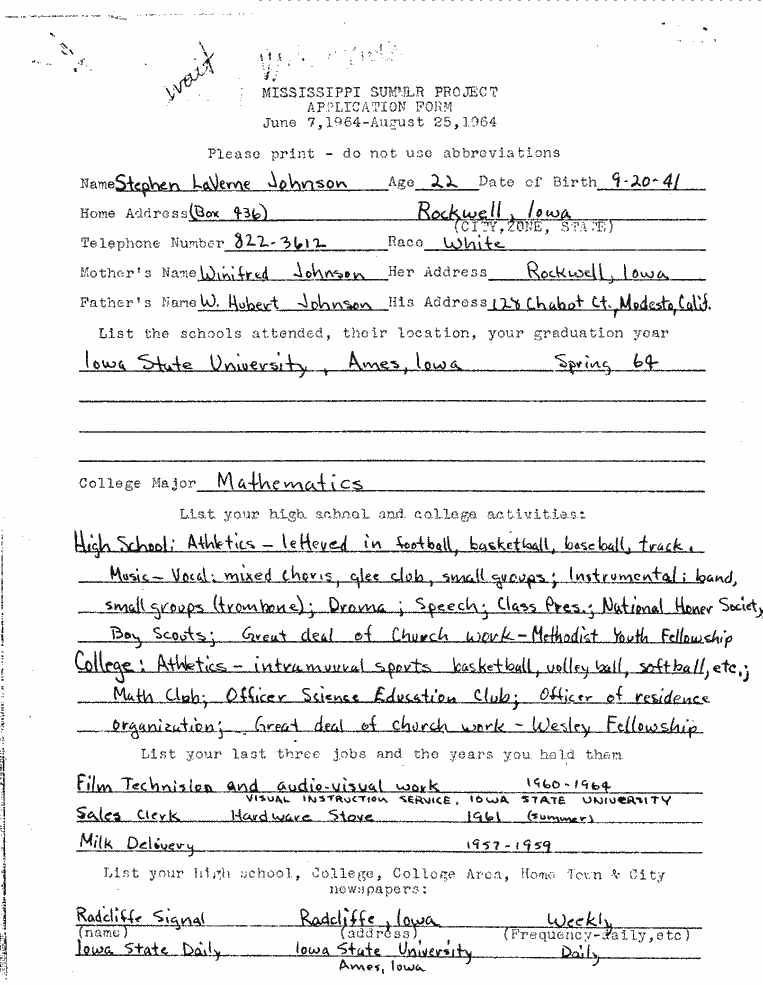 wait
MISSISSIPPI SUMMER PROJECT
APPLICATION FORM
June 7,1964-August 25,1964
Please print - do not use abbreviations
Name Stephen LaVerne Johnson Age 22 Date of Birth 9-20-41
Home Address (Box 436) Rockwell, Iowa
(CITY, ZONE, STATE)
Telephone Number 822-3612 Race White
Mother's Name Winifred Johnson Her Address Rockwell, Iowa
Father's Name W. Hubert Johnson His Address 128 Chabot Ct., Modesto, Calif.
List the schools attended, their location, your graduation year
Iowa State University, Ames, Iowa Spring 64
College Major Mathematics
List your high school and college activities:
High School: Athletics - lettered in football, basketball, baseball, track.
Music - Vocal: mixed choris, glee club, small groups; Instrumental: band,
small groups (trombone); Drama; Speech; Class Pres.; National Honer Society
Boy Scouts; Great deal of Church work - Methodist Youth Fellowship
College: Athletics - intramuural sports basketball, volley ball, softball, etc.;
Math Club; Officer Science Education Club; Officer of residence
organization; Great deal of church work - Wesley Fellowship
List your last three jobs and the years you held them
Film Technision and audio-visual work 1960-1964
VISUAL INSTRUCTION SERVICE, IOWA STATE UNIVERSITY
Sales Clerk Hardware Store 1961 (summer)
Milk Delivery 1957-1959
List your high school, College, College Area, Home Town & City
newspapers:
Radcliffe Signal Radcliffe, Iowa Weekly
(name) (address) (Frequency-daily,etc)
Iowa State Daily Iowa State University Daily
Ames, Iowa